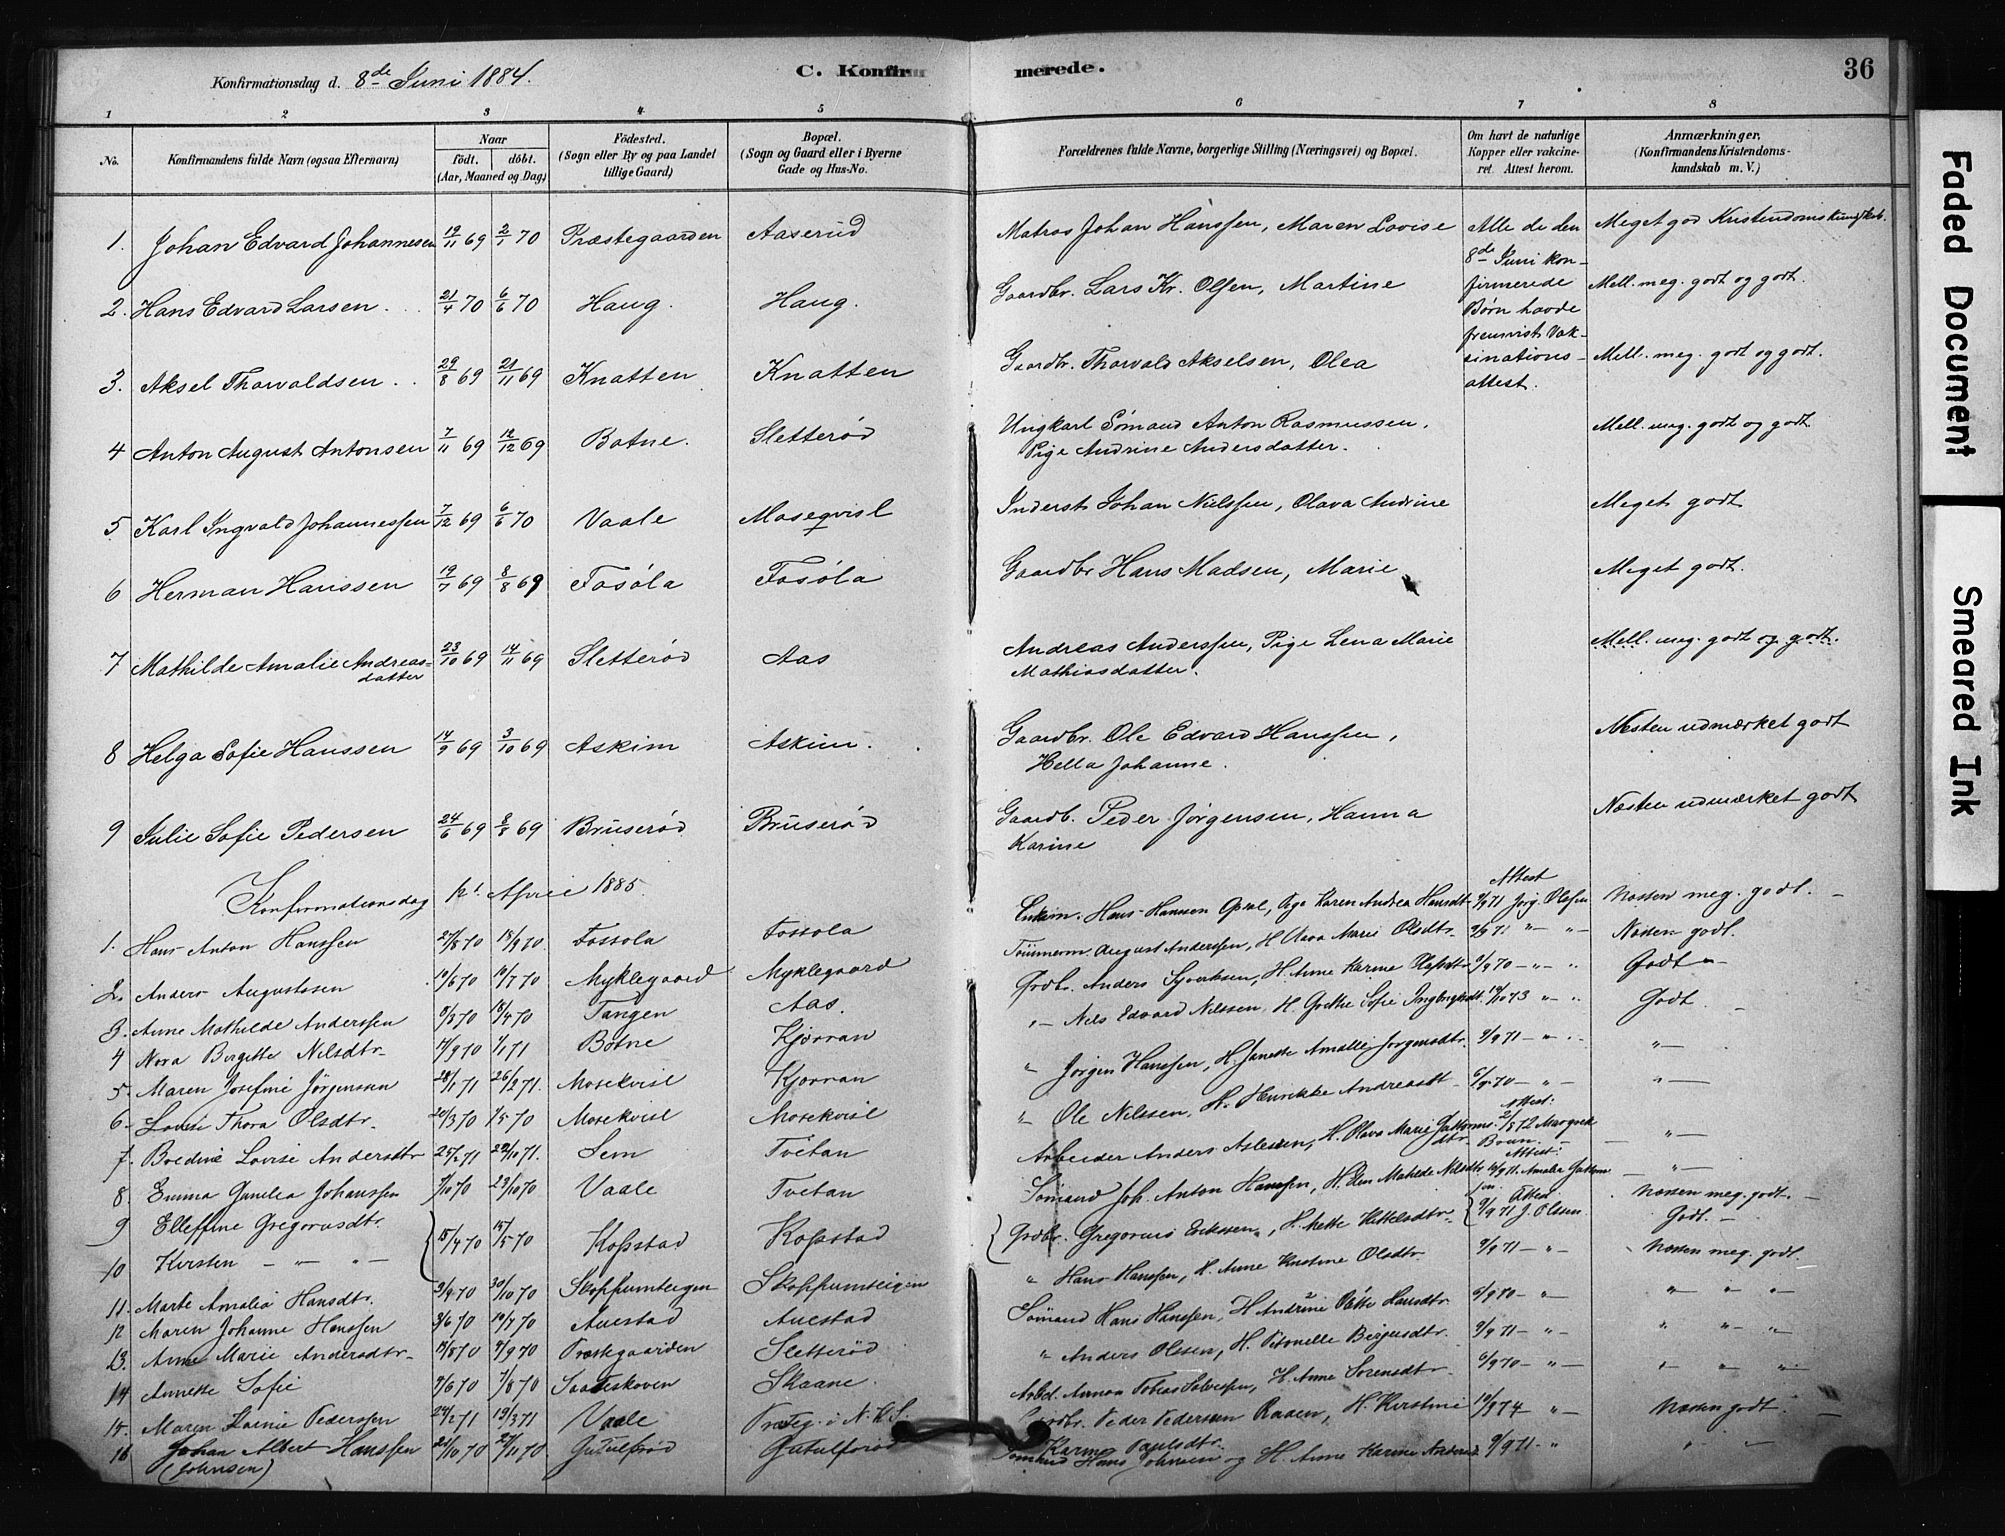 Konfirmationsdag d. 8de Juni 1884.
C. Konfirmerede.
36
1 2 3 4 5 6 7 8
No. Konfirmandens fulde Navn (ogsaa Efternavn) Naar födt. döbt. (Aar, Maaned og Dag) Födested. (Sogn eller By og paa Landet tillige Gaard) Bopæl. (Sogn og Gaard eller i Byerne Gade og Hus-No. Forældrenes fulde Navne, borgerlige Stilling (Næringsvei) og Bopæl. Om havt de naturlige Kopper eller vakcineret. Attest herom. Anmærkninger. (Konfirmandens Kristendomskundskab m. V.)
1. Johan Edvard Johannesen 19/11 69 2/1 70 Præstegaarden Aaserud Matros Johan Hanssen, Maren Lovise Alle de den Meget god Kristendomskundskab.
8de Juni kon-
2. Hans Edvard Larsen. 21/4 70 6/6 70 Haug. Haug. Gaardbr. Lars Kr. Olsen, Martine firmerede Mell. meg. godt og godt.
Børn havde
fremvist Vak-
3. Aksel Thorvaldsen 29/8 69 21/11 69 Knatten Knatten Gaardbr. Thorvald Akselsen, Olea sinations- Mell. meg. godt og godt.
attest.
4 Anton August Antonsen 7/11 69 12/12 69 Botne. Sletterød Ungkarl Sømand Anton Rasmussen, Mell. meg. godt og godt
Pige Andrine Andersdatter.
5 Karl Ingvald Johannessen 7/12 69 6/6 70 Vaale Moseqvist Inderst Johan Nielssen, Olava Andrine Meget godt
6 Herman Hanssen 19/7 69 8/8 69 Fosøla Fosøla Gaardbr Hans Madsen, Marie Meget godt.
7 Mathilde Amalie Andreas- 23/10 69 14/11 69 Sletterød Aas Andreas Anderssen, Pige Lena Marie Mell. meg. godt og godt.
datter Mathiasdatter.
8 Helga Sofie Hanssen 14/9 69 3/10 69 Askim Askim. Gaardbr. Ole Edvard Hanssen, Næsten udmærket godt
Hella Johanne.
9 Julie Sofie Pedersen 24/6 69 8/8 69 Bruserød Bruserød Gaardb. Peder Jørgensen, Hanna Næsten udmærket godt
Karine
Konfirmationsdag 12. April 1885.
1. Hans Anton Hanssen 27/8 70 18/9 70. Fossola Fossola Hans Hansen Karen Andrea Hansdt Attest 9/9 71 Jørg. Olsen Næsten meg. godt.
2. Anders Augustsen 10/7 70 Myklegaard Myklegaard Tømmerm. August Anderssen, H. Marie Olsdtr. 9/9 71 Næsten godt.
3. Anne Mathilde Anderssen 8/3 70 18/4 70 Tangen Aas. Grdbr. Anders Syvertsen, H. Anne Karine 9/9 70 Godt
4 Nora Birgitte Nilsdtr. 17/9 70 1/1 71 Botne Kjørran Nils Edvard Nilssen, H. Grethe Sofie 73 Godt
5. Maren Josefine Jörgensen 28/1 71 26/2 71. Mosekvist Kjorran Jörgen Hanssen, H. Janette Amalie Jorgensdtr. 9/9 71
6. Lovise Thora Olsdtr. 20/3 70 1/5 70 Mosekvist Mosekvist Ole Nilssen, H. Henrikke Andreasdt 6/9 70
7. Bredine Lovise Andersdtr 25/2 71 22/10 71. Sem Tvetan Arbeider Anders Aslesen, H. Olava Marie Attest: 2/8 72 Brun.
8 Emma Gunilea Johanssen 70 23/10 70 Vaale Tvetan Sømand Joh. Anton Hanssen, H. Elen Matilde Nilsdtr Attest: 6/9 71 Amalie
9 Elleffine Gregoriusdtr. 18/4 70 15/5 70 Kopstad Kopstad Grdbr. Gregorius Eriksen, H. Mette Kittelsdtr Attest 9/9 71 J. Olssen. Næsten meg. godt.
10 Kirsten Godt.
11. Marte Amalia Hansdtr. 3/9 70 30/10 70 Skoppumteigen Skoppumteigen Hans Hanssen, H. Anne Kristine Olsdtr. 9/9 71 Næsten meg. godt.
12 Maren Johanne Hanssen 3/6 70 10/7 70 Auestad Auestad Sömand Hans Hanssen, H. Andrine Hansdtr. 6/9 70
13. Anne Marie Andersdtr. 7/8 70 4/9 70 Præstegaarden Sletterød Anders Olssen, H. Petronelle Birgersdtr. 9/9 71
14 Annette Sofie 9/6 70 7/8 70 Skaane. Arbd. Tobias H. Anne Sorensdtr. 6/9 70
15. Maren Pederssen 24/2 71 19/3 71 Vaale i N. Peder Pederssen Raaen, H. Kirstine 19/9 74 Næsten godt.
16 Johan Albert Hanssen 21/10 70 27/11 70 Gutulfsrød Gutulfsrød Karine Paulsdtr.
(Johnsen) Sömand Hans Johnsen og H. Anne Karine 9/9 71
Faded Document
Smeared Ink